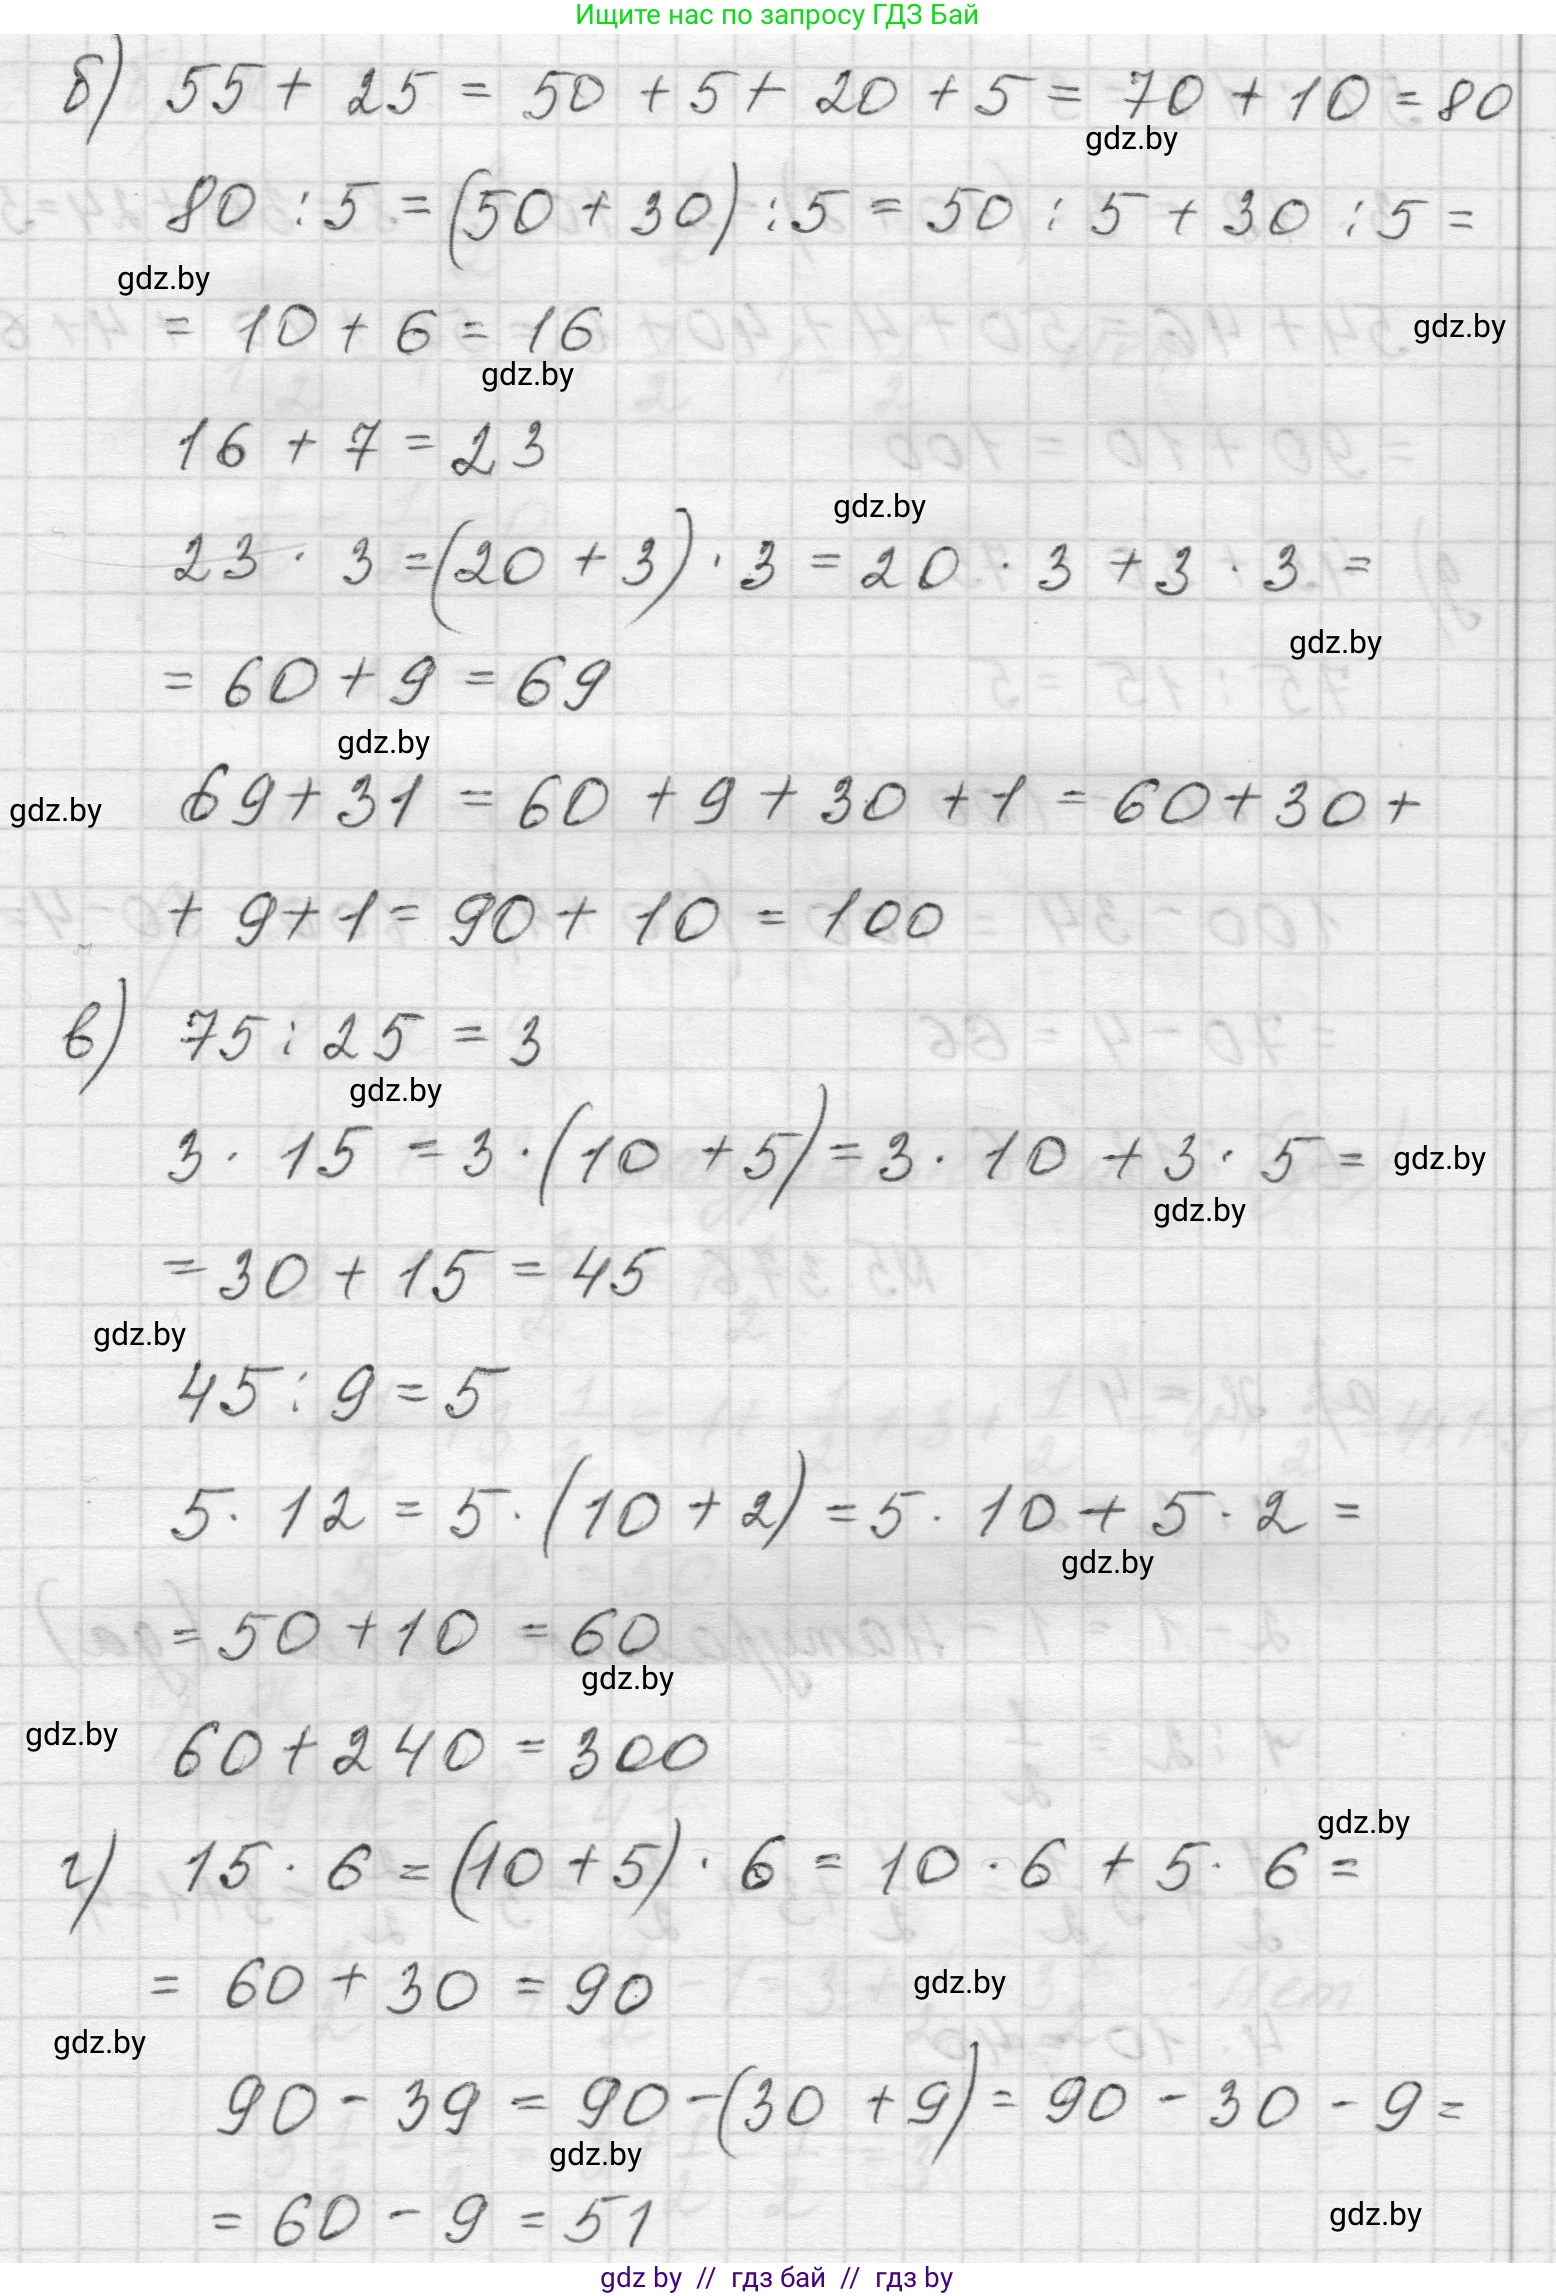 Ищите нас по запросу ГДЗ Бай
б) 55 + 25 = 50 + 5 + 20 + 5 = 70 + 10 = 80
gdz.by
80 : 5 = (50 + 30) : 5 = 50 : 5 + 30 : 5 =
gdz.by
= 10 + 6 = 16
gdz.by
gdz.by
16 + 7 = 23
gdz.by
23 · 3 = (20 + 3) · 3 = 20 · 3 + 3 · 3 =
gdz.by
= 60 + 9 = 69
gdz.by
gdz.by
69 + 31 = 60 + 9 + 30 + 1 = 60 + 30 +
+ 9 + 1 = 90 + 10 = 100
в) 75 : 25 = 3
gdz.by
3 · 15 = 3 · (10 + 5) = 3 · 10 + 3 · 5 =
gdz.by
gdz.by
= 30 + 15 = 45
gdz.by
45 : 9 = 5
5 · 12 = 5 · (10 + 2) = 5 · 10 + 5 · 2 =
gdz.by
= 50 + 10 = 60
gdz.by
gdz.by
60 + 240 = 300
gdz.by
г) 15 · 6 = (10 + 5) · 6 = 10 · 6 + 5 · 6 =
= 60 + 30 = 90
gdz.by
gdz.by
90 - 39 = 90 - (30 + 9) = 90 - 30 - 9 =
gdz.by
= 60 - 9 = 51
gdz.by
gdz by // гдз бай // гдз by